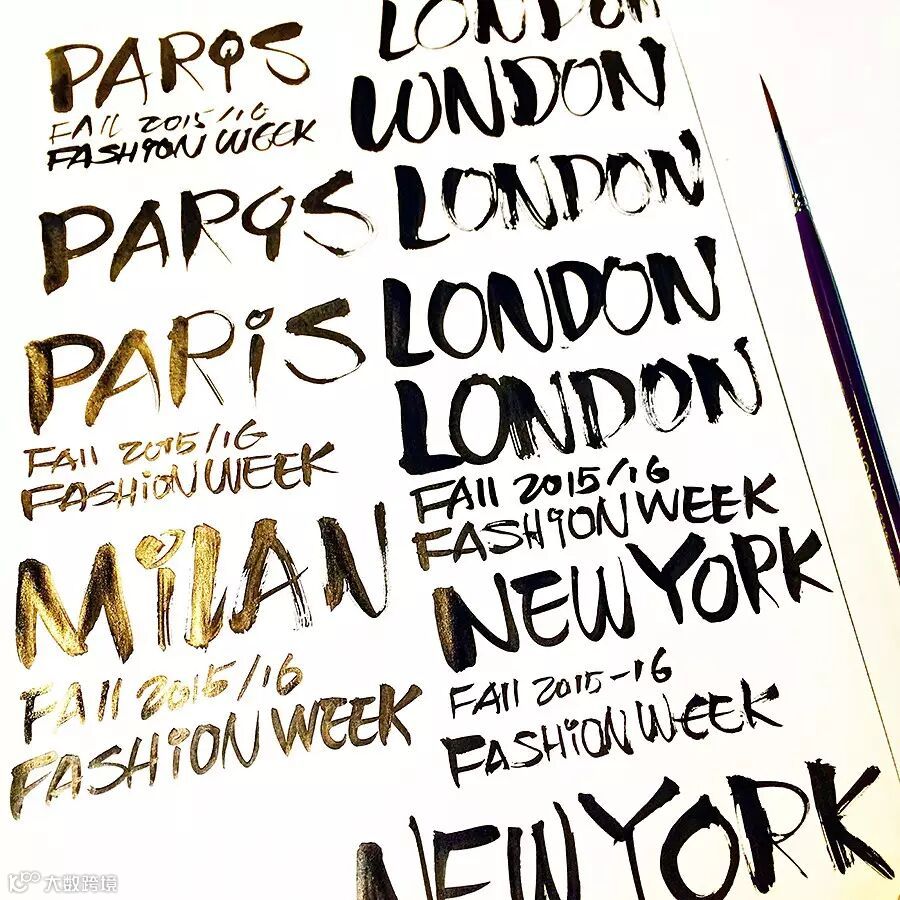 PARIS
FALL 2015/16
FASHION WEEK
PARIS
PARIS
FALL 2015/16
FASHION WEEK
MILAN
FALL 2015/16
FASHION WEEK
LONDON
LONDON
LONDON
LONDON
LONDON
FALL 2015/16
FASHION WEEK
NEW YORK
FALL 2015-16
FASHION WEEK
NEW YORK
大数跨境